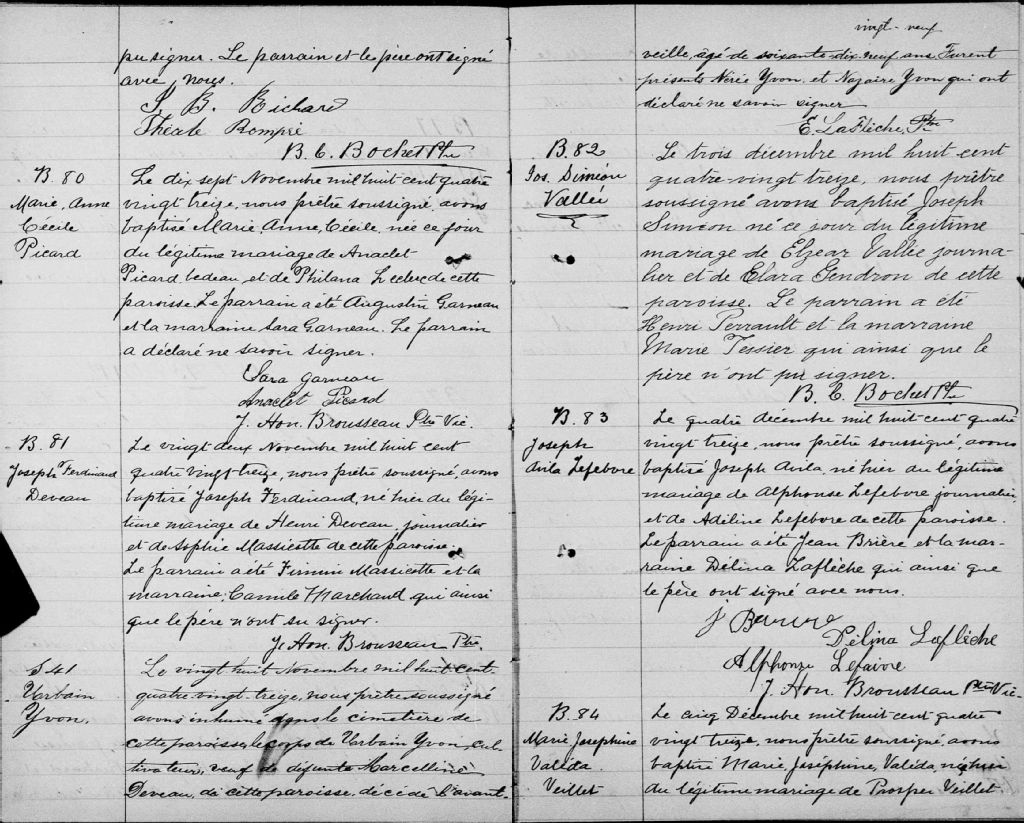 pu signer. Le parrain et le père ont signé
avec nous.
S. B. Richard
Thècle Rompré
B. C. Bochet Ptre
B. 80
Marie, Anne
Cécile
Picard
Le dix sept Novembre mil huit cent quatre
vingt treize, nous prêtre soussigné, avons
baptisé Marie Anne, Cécile, née ce jour
du légitime mariage de Anaclet
Picard bedeau, et de Philana Leclerc de cette
paroisse. Le parrain a été Augustin Garneau
et la marraine Sara Garneau. Le parrain
a déclaré ne savoir signer.
Sara Garneau
Anaclet Picard
J. Hon. Brousseau Ptre Vic.
B. 81
Joseph Ferdinand
Deveau
Le vingt deux Novembre mil huit cent
quatre vingt treize, nous prêtre soussigné, avons
baptisé Joseph Ferdinand, né hier du légi-
time mariage de Henri Deveau, journalier
et de Sophie Massicotte de cette paroisse.
Le parrain a été Firmin Massicotte et la
marraine, Camile Marchand, qui ainsi
que le père n'ont su signer.
J. Hon. Brousseau Ptre.
S 41
Urbain
Yvon.
Le vingt huit Novembre mil huit cent-
quatre-vingt-treize, nous prêtre soussigné
avons inhumé dans le cimetière de
cette paroisse, le corps de Urbain Yvon, cul-
tivateur, veuf de défunte Marcelline
Deveau, de cette paroisse, décédé l'avant-
vingt-neuf
veille, âgé de soixante dix neuf ans. Furent
présents Nérée Yvon et Nazaire Yvon qui ont
déclaré ne savoir signer
E. Laflèche, Ptre
B. 82
Jos. Siméon
Vallée
Le trois décembre mil huit cent
quatre-vingt treize, nous prêtre
soussigné avons baptisé Joseph
Siméon né ce jour du légitime
mariage de Elzear Vallee journa-
lier et de Elara Gendron de cette
paroisse. Le parrain a été
Henri Perrault et la marraine
Marie Tessier qui ainsi que le
père n'ont pu signer.
B. C. Bochet Ptre
B. 83
Joseph
Avila Lefebvre
Le quatre décembre mil huit cent quatre
vingt treize, nous prêtre soussigné, avons
baptisé Joseph Avila, né hier du légitime
mariage de Alphonse Lefebvre journalier,
et de Adéline Lefebvre de cette paroisse.
Le parrain a été Jean Brière et la mar-
raine Délina Laflèche qui ainsi que
le père ont signé avec nous.
Délina Laflèche
Alphonze Lefaivre
J. Hon. Brousseau Ptre Vic.
B. 84
Marie Josephine
Valéda
Veillet
Le cinq Décembre mil huit cent quatre
vingt treize, nous prêtre soussigné, avons
baptisé Marie, Joséphine, Valéda, née hier
du légitime mariage de Prosper Veillet.